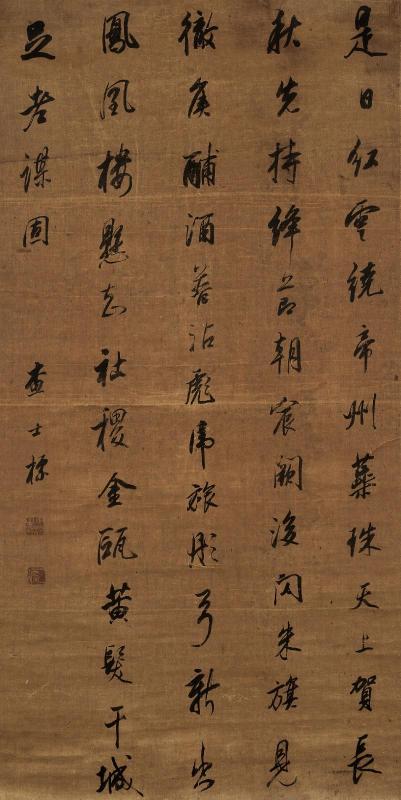 是日紅雲繞帝州蘂珠天上賀長
秋先持絳節朝宸闕後閃朱旗見
徹侯酺酒普沾彪虎旅彤弓新出
鳳凰樓懸知社稷金甌黃髮干城
足老謀固
查士標